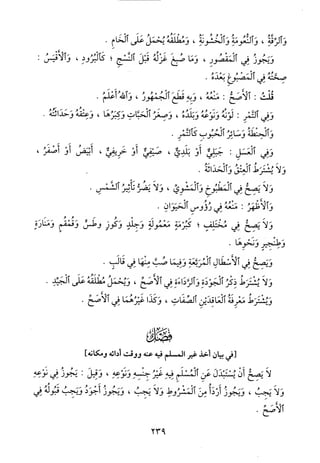 وَالرِّقَّةُ ، وَالنُّعُومَةُ وَالْخُشُونَةُ ، وَمُطْلَقُهُ يُحْمَلُ عَلَى الْخَامِ .
وَيَجُوزُ فِي الْمَقْصُورِ ، وَمَا صُبِغَ غَزْلُهُ قَبْلَ النَّسْجِ ؛ كَالْبُرُودِ ، وَالأَقْيَسُ :
صِحَّتُهُ فِي الْمَصْبُوغِ بَعْدَهُ .
قُلْتُ : الأَصَحُّ : مَنْعُهُ ، وَبِهِ قَطَعَ الْجُمْهُورُ ، وَاللهُ أَعْلَمُ .
وَفِي التَّمْرِ : لَوْنُهُ وَنَوْعُهُ وَبَلَدُهُ ، وَصِغَرُ الْحَبَّاتِ وَكِبَرُهَا ، وَعِتْقُهُ وَحَدَاثَتُهُ .
وَالْحِنْطَةُ وَسَائِرُ الْحُبُوبِ كَالتَّمْرِ .
وَفِي الْعَسَلِ : جَبَلِيٌّ أَوْ بَلَدِيٌّ ، صَيْفِيٌّ أَوْ خَرِيفِيٌّ ، أَبْيَضُ أَوْ أَصْفَرُ ،
وَلاَ يُشْتَرَطُ الْعِتْقُ وَالْحَدَاثَةُ .
وَلاَ يَصِحُّ فِي الْمَطْبُوخِ وَالْمَشْوِيِّ ، وَلاَ يَضُرُّ تَأْثِيرُ الشَّمْسِ .
وَالأَظْهَرُ : مَنْعُهُ فِي رُؤُوسِ الْحَيَوَانِ .
وَلاَ يَصِحُّ فِي مُخْتَلِفٍ ؛ كَبُرْمَةٍ مَعْمُولَةٍ وَجِلْدٍ وَكُوزٍ وَطَسٍّ وَقُمْقُمٍ وَمَنَارَةٍ
وَطِنْجِيرٍ وَنَحْوِهَا .
وَيَصِحُّ فِي الأَسْطَالِ الْمُرَبَّعَةِ وَفِيمَا صُبَّ مِنْهَا فِي قَالَبٍ .
وَلاَ يُشْتَرَطُ ذِكْرُ الْجَوْدَةِ وَالرَّدَاءَةِ فِي الأَصَحِّ ، وَيُحْمَلُ مُطْلَقُهُ عَلَى الْجَيِّدِ .
وَيُشْتَرَطُ مَعْرِفَةُ الْعَاقِدَيْنِ الصِّفَاتِ ، وَكَذَا غَيْرُهُمَا فِي الأَصَحِّ .
فَصْلٌ
[في بيان أخذ غير المسلم فيه عنه ووقت أدائه ومكانه]
لاَ يَصِحُّ أَنْ يُسْتَبْدَلَ عَنِ الْمُسْلَمِ فِيهِ غَيْرُ جِنْسِهِ وَنَوْعِهِ ، وَقِيلَ : يَجُوزُ فِي نَوْعِهِ
وَلاَ يَجِبُ ، وَيَجُوزُ أَرْدَأُ مِنَ الْمَشْرُوطِ وَلاَ يَجِبُ ، وَيَجُوزُ أَجْوَدُ وَيَجِبُ قَبُولُهُ فِي
الأَصَحِّ .
٢٣٩